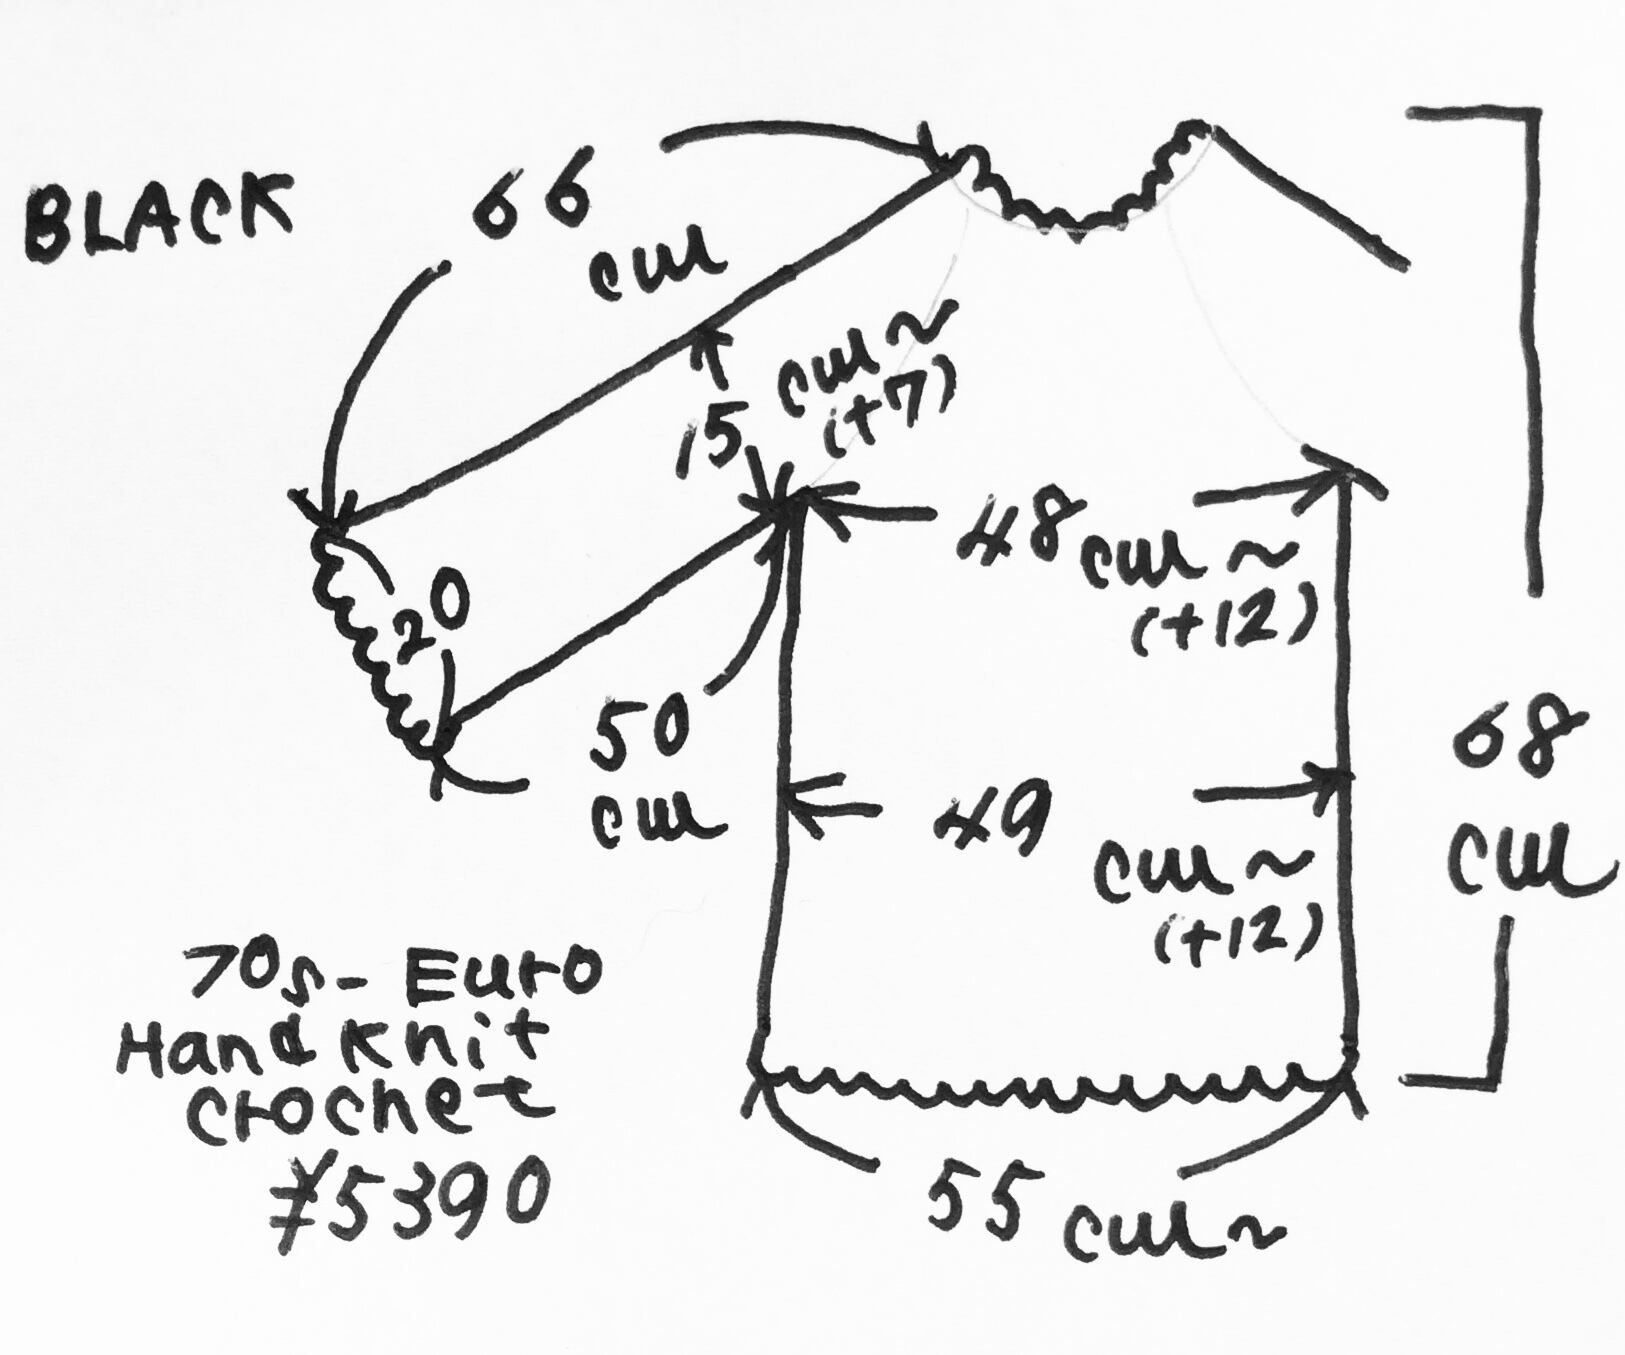 BLACK
66
cm
15 cm~
(+7)
48 cm~
(+12)
20
50
cm
49
cm~
(+12)
68
cm
70s-Euro
Hand Knit
Crochet
¥5390
55 cm~